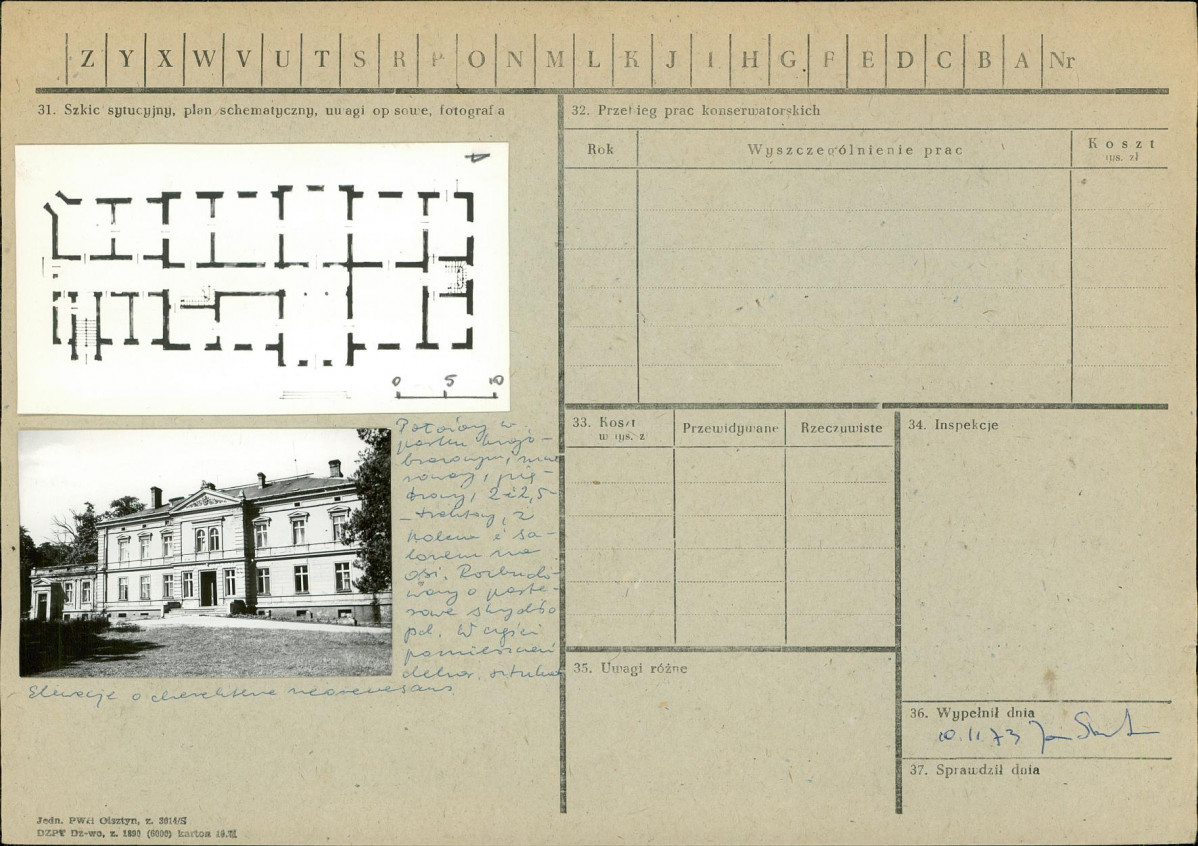 Z Y X W V U T S R P O N M L K J I H G F E D C B A Nr
31. Szkic sytucyjny, plan schematyczny, uwagi opisowe, fotografia
0 5 10
Położony w
parku krajo-
brazowym, mu-
rowany, pię-
trowy, 2 i 2,5
-traktowy, z
holem i sa-
lonem na
osi. Rozbudo-
wany o parte-
rowe skrzydło
pd. W części
pomieszczeń
dekor. sztukat
Elewacje o charakterze neorenesans
32. Przebieg prac konserwatorskich
Rok
Wyszczególnienie prac
Koszt
tys. zł
33. Koszt
w tys. z
Przewidywane
Rzeczywiste
34. Inspekcje
35. Uwagi różne
36. Wypełnił dnia
10.11.73 Jan
37. Sprawdził dnia
Jedn. PWH Olsztyn, z. 3614/S
DZPT Dz-wo, z. 1890 (6000) karton